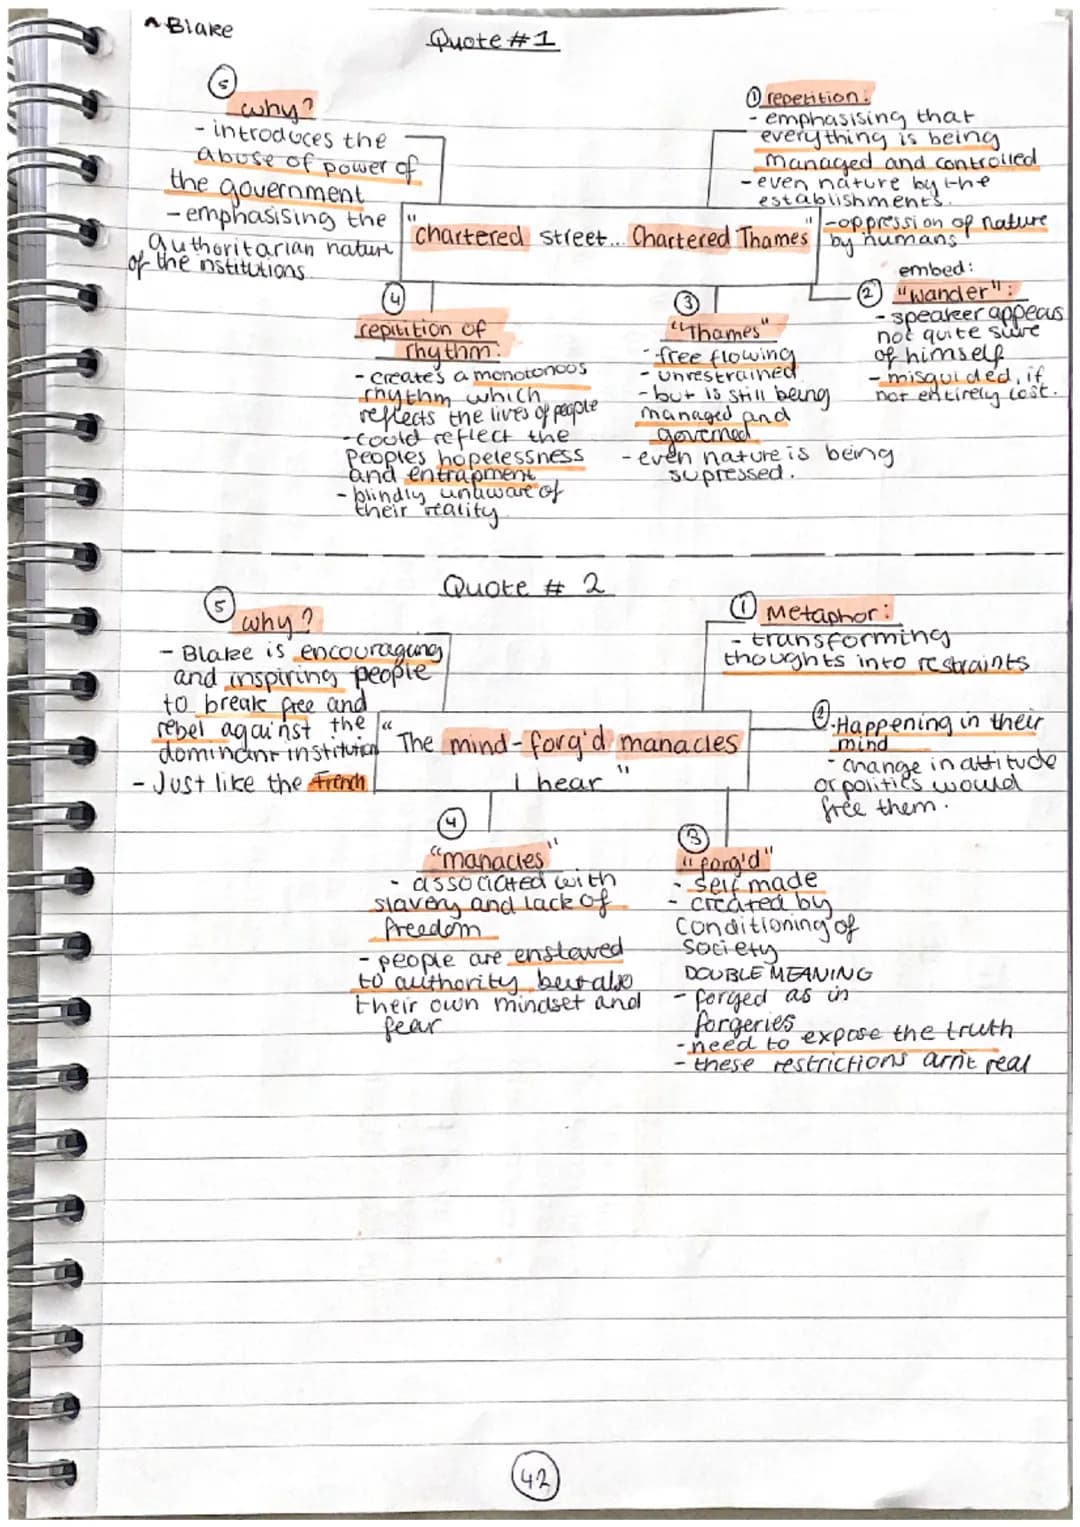 ^ Blake
Quote #1
5
why?
- introduces the
abuse of power of
the government
- emphasising the
authoritarian nature
of the institutions
1 repetition:
- emphasising that
everything is being
managed and controlled
- even nature by the
establishments.
- oppression of nature
by humans
"chartered street... Chartered Thames"
embed:
2 "wander":
- speaker appears
not quite sure
of himself
- misguided, if
not entirely lost.
3
"Thames"
- free flowing
- unrestrained
- but is still being
managed and
governed
- even nature is being
supressed.
4
repitition of
rhythm:
- creates a monotonous
rhythm which
reflects the lives of people
- could reflect the
peoples hopelessness
and entrapment
- blindly unaware of
their reality
Quote # 2
5
why?
- Blake is encouraging
and inspiring people
to break free and
rebel against the
dominant institution
- Just like the French
1 Metaphor:
- transforming
thoughts into restraints
"The mind-forg'd manacles
I hear"
2. Happening in their
mind
- change in attitude
or politics would
free them.
4
"manacles"
- associated with
slavery and lack of
freedom
- people are enslaved
to authority but also
their own mindset and
fear
3
"forg'd"
- self made
- created by
conditioning of
society
DOUBLE MEANING
- forged as in
forgeries
- need to expose the truth
- these restrictions arn't real
42